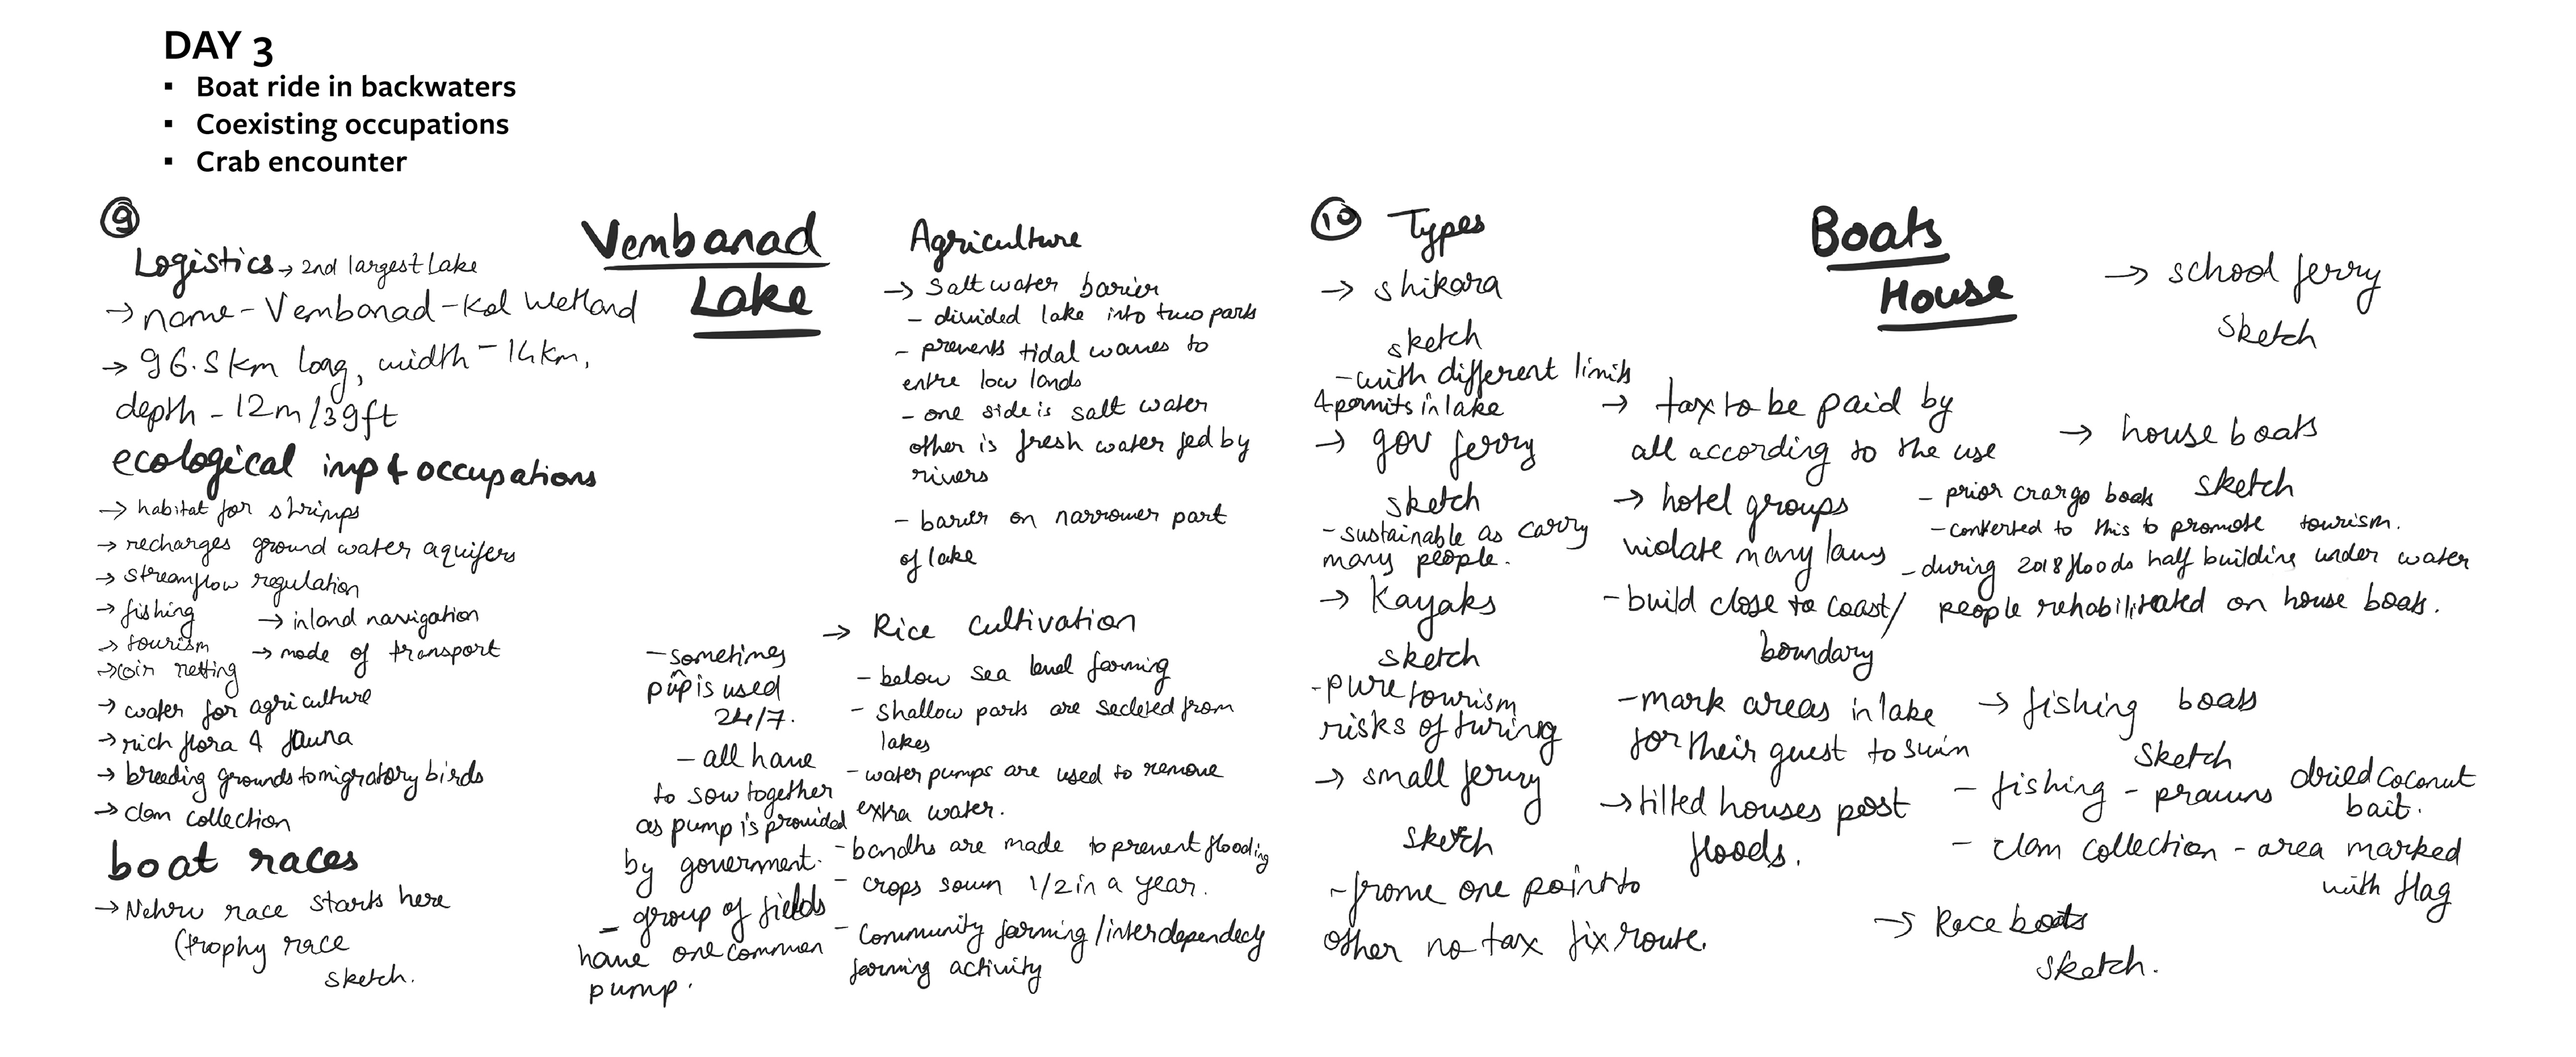 DAY 3
▪ Boat ride in backwaters
▪ Coexisting occupations
▪ Crab encounter
9
Vembanad
Lake
Logistics → 2nd largest Lake
→ name - Vembanad - Kol Wetland
→ 96.5km long, width - 14km,
depth - 12m/39ft
ecological imp & occupations
→ habitat for shrimps
→ recharges ground water aquifers
→ streamflow regulation
→ fishing → inland navigation
→ tourism → mode of transport
→ coir retting
→ water for agriculture
→ rich flora & fauna
→ breeding grounds to migratory birds
→ clam collection
boat races
→ Nehru race starts here
(trophy race
sketch.
Agriculture
→ Salt water barier
- divided lake into two parts
- prevents tidal waves to
entre low lands
- one side is salt water
other is fresh water fed by
rivers
- barier on narrower part
of lake
→ Rice cultivation
- below sea level farming
- Shallow parts are secleted from
lakes
- water pumps are used to remove
extra water.
- bandhs are made to prevent flooding
- crops sown 1/2 in a year.
- Community farming/interdependecly
farming activity
- sometimes
is used
24/7.
- all have
to sow together
as pump is provided
by goverment.
- group of fields
have one common
pump.
10
Boats
House
Types
→ shikara
sketch
- with different limits
& permits in lake
→ gov ferry
sketch
- sustainable as carry
many people.
→ Kayaks
sketch
- pure tourism
risks of
→ small ferry
sketch
- frome one point to
other no tax fix route.
→ tax to be paid by
all according to the use
→ hotel groups
violate many laws
- build close to coast/
boundary
- mark areas in lake
for their guest to swim
→ tilted houses post
floods.
→ school ferry
sketch
→ house boats
sketch
- prior crargo boats
- conkerted to this to promote tourism.
- during 2018 floods half building under water
people rehabilitated on house boats.
→ fishing boats
sketch
- fishing - prawns dried coconut
bait.
- clam collection - area marked
with flag
→ Race boats
sketch.